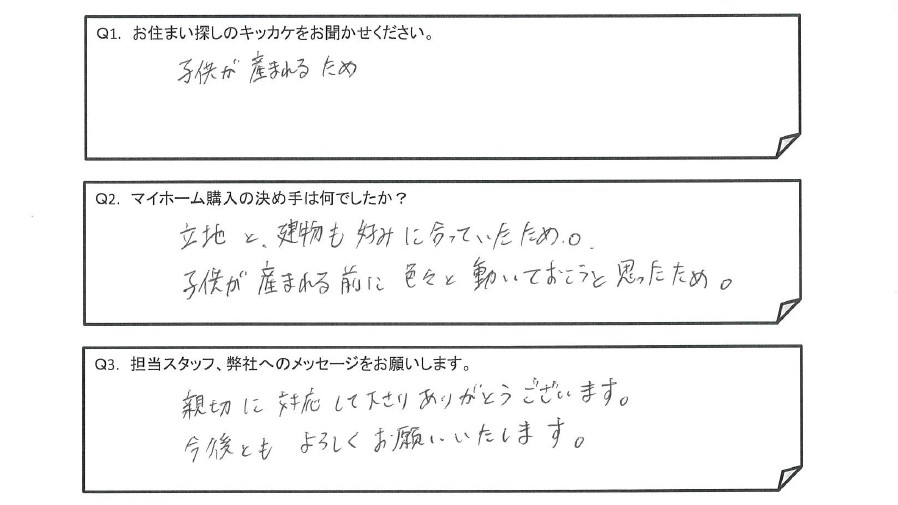 Q1. お住まい探しのキッカケをお聞かせください。
子供が産まれるため
Q2. マイホーム購入の決め手は何でしたか？
立地と、建物も好みに合っていたため。
子供が産まれる前に色々と動いておこうと思ったため。
Q3. 担当スタッフ、弊社へのメッセージをお願いします。
親切に対応して下さりありがとうございます。
今後ともよろしくお願いいたします。